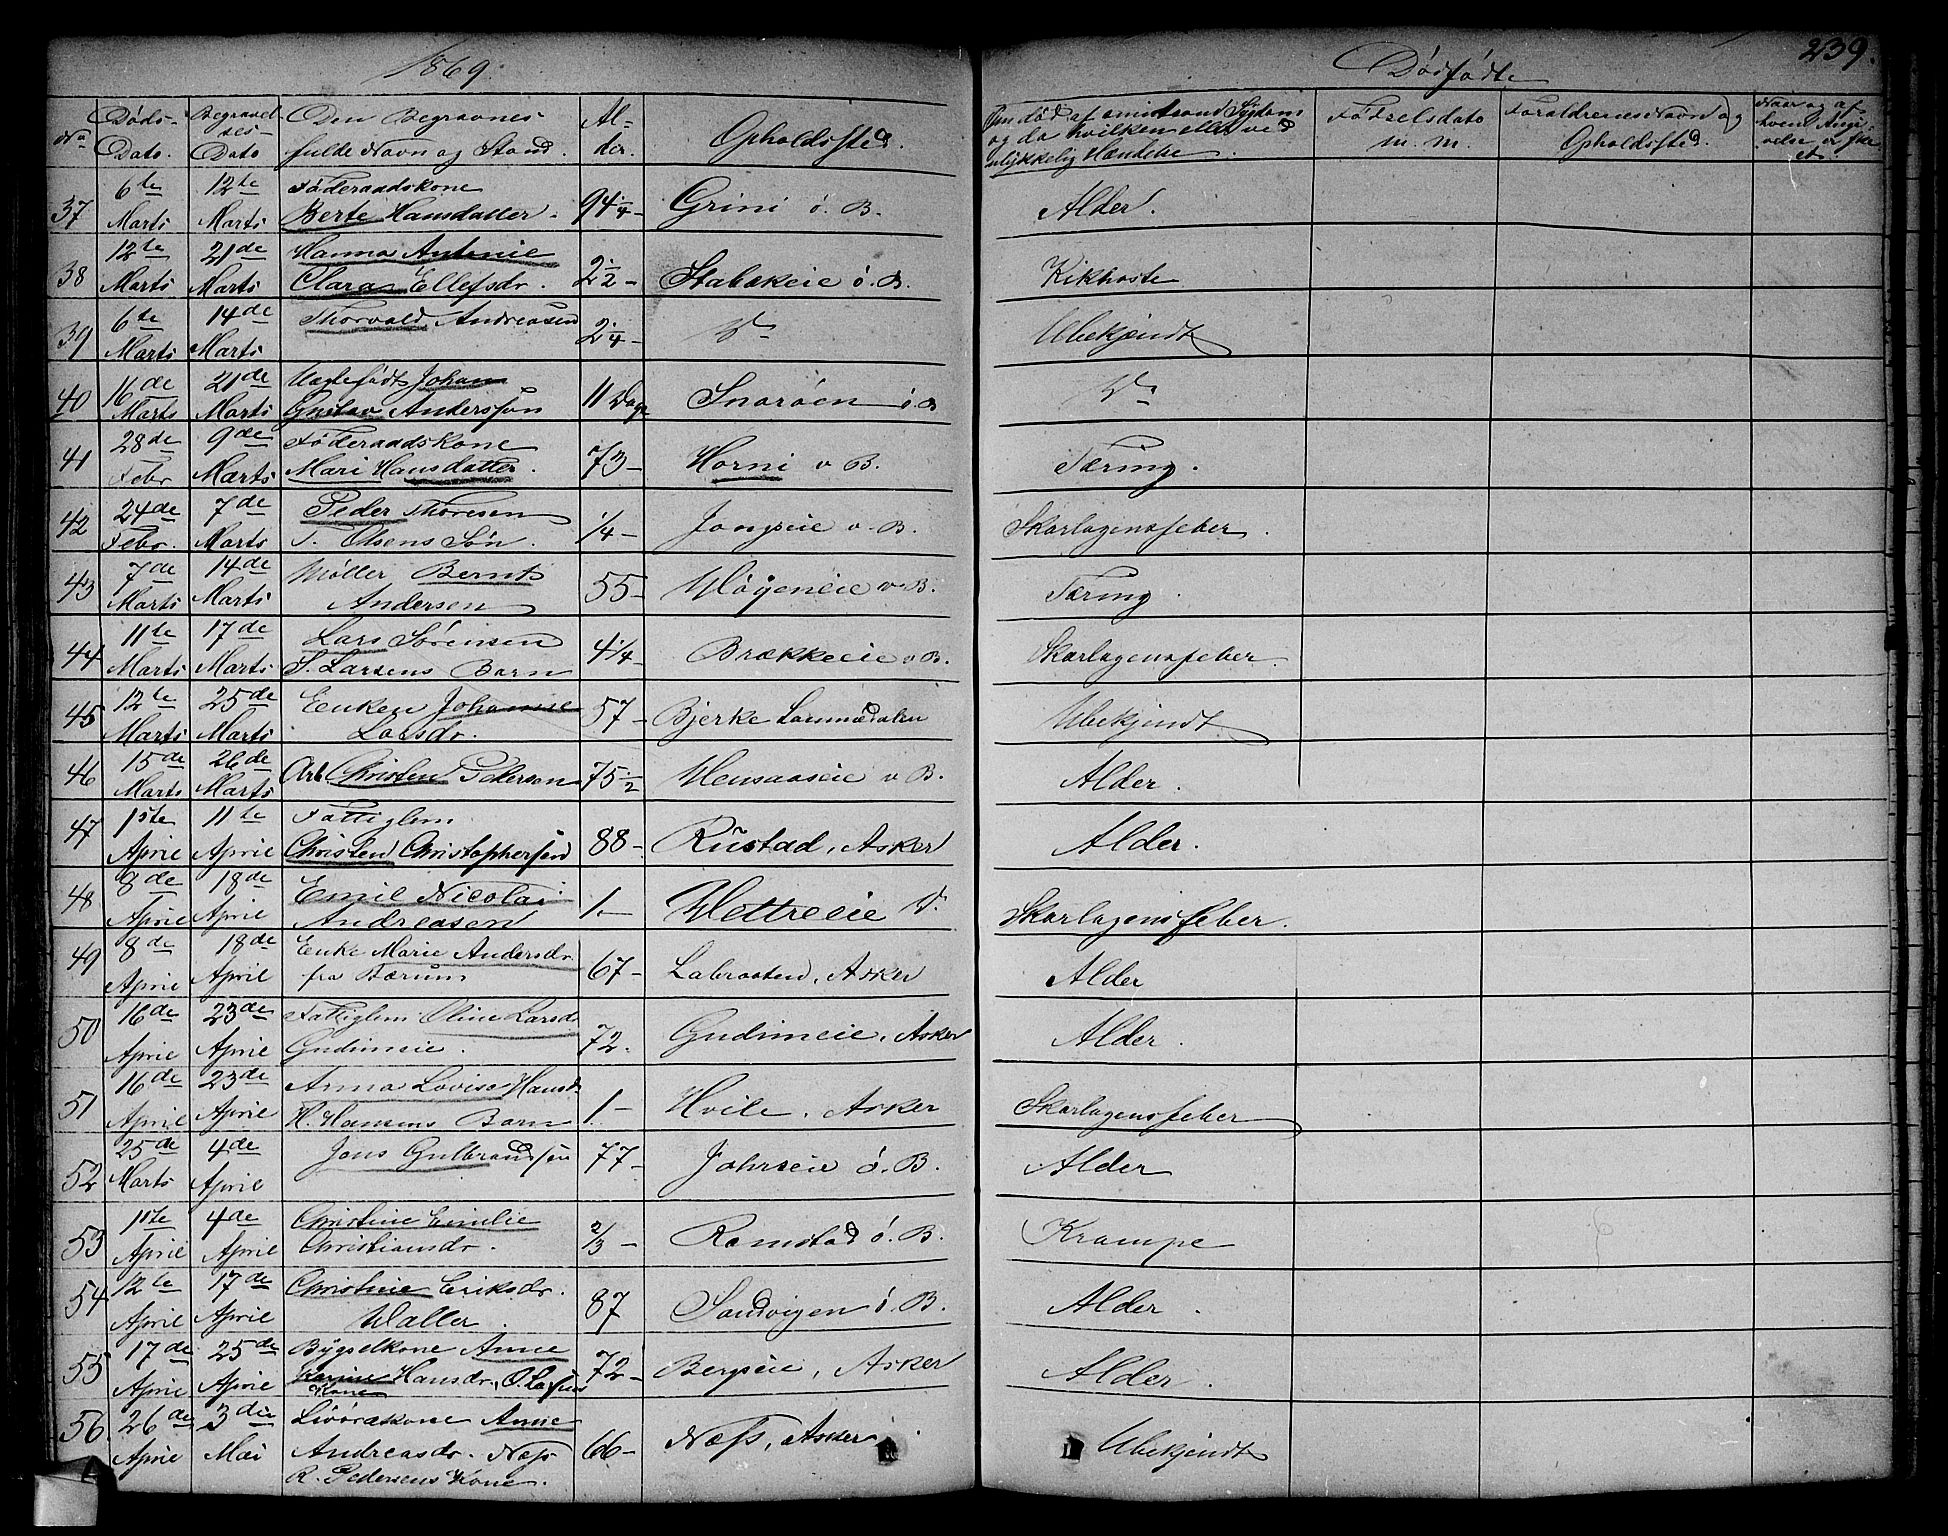 1869
Dødfødte
239.
No
Døds-
Dato.
Begravel
ses-
Dato
Den Begravnes
fulde Navn og Stand.
Al-
der.
Opholdssted.
Om død af smitsom Sygdom
og da hvilken eller ved
ulykkelig Hændelse.
Fødselsdato
m. m.
Forældrenes Navn og
Opholdssted.
Naar og af
hvem Angi-
velse er ske
et.
37 6te Marts 12te Marts Føderaadskone
Berte Hansdatter. 94 1/4 - Grini ø. B. Alder.
38 12te Marts 21de Marts Hanna Antonie
Clara Ellefsdr. 2 1/2 - Stabækeie ø. B. Kikhoste
39 6te Marts 14de Marts Thorvald Andreasen 2 1/4 - Do Ubekjendt
40 16de Marts 21de Marts Uægtefødt Johan
Gustav Anderssøn 11 Dage Snarøen ø. B Do
41 28de Febr 9de Marts Føderaadskone
Mari Hansdatter. 73 - Horni v B. Tæring.
42 24de Febr. 7de Marts Peder Thoresen
T. Olsens Søn. 1/4 - Jongseie v. B. Skarlagensfeber.
43 7de Marts 14de Marts Møller Bernt
Andersen 55 - Høgeneie v. B. Tæring.
44 11te Marts 17de Marts Lars Sørensen
S. Larsens Barn 4 1/4 - Brækkeeie v B. Skarlagensfeber.
45 12te Marts 25de Marts Enken Johanne
Larsdr. 57 - Bjerke Lommedalen Ubekjendt
46 15de Marts 26de Marts Arb Christen Pedersen 75 1/2 - v B. Alder.
47 1ste April 11te April Fattiglem
Christen Christophersen 88 - Rustad, Asker Alder.
48 8de April 18de April Emil Nicolai
Andreasen 1. - Wettreeie Skarlagensfeber.
49 8de April 18de April Enke Marie Andersdr
fra Bærum 67 - Labraaten, Asker Alder
50 16de April 23de April Fattiglem Oline Larsd
Gudimeie. 72. Gudimeie, Asker Alder.
51 16de April 23de April Anna Lovise Hansd
H. Hansens Barn 1. - Hvile, Asker Skarlagensfeber
52 25de Marts 4de April Jens Gulbrandsen 77 - ø. B. Alder
53 1ste April 4de April Christine Emilie
Christiansdr. 2/3 - Ramstad ø. B. Krampe
54 12te April 17de April Christine Eriksdr.
Waller. 87 Sandvigen ø. B. Alder.
55 17de April 25de April Bygselkone Anne
Karine Hansdr. O. Larsens
Kone 72 - Bergseie, Asker Alder.
56. 26de April 3die Mai Anne
Andreasdr. Næss
R. Pedersens Kone. 66 - Næss, Asker Ubekjendt